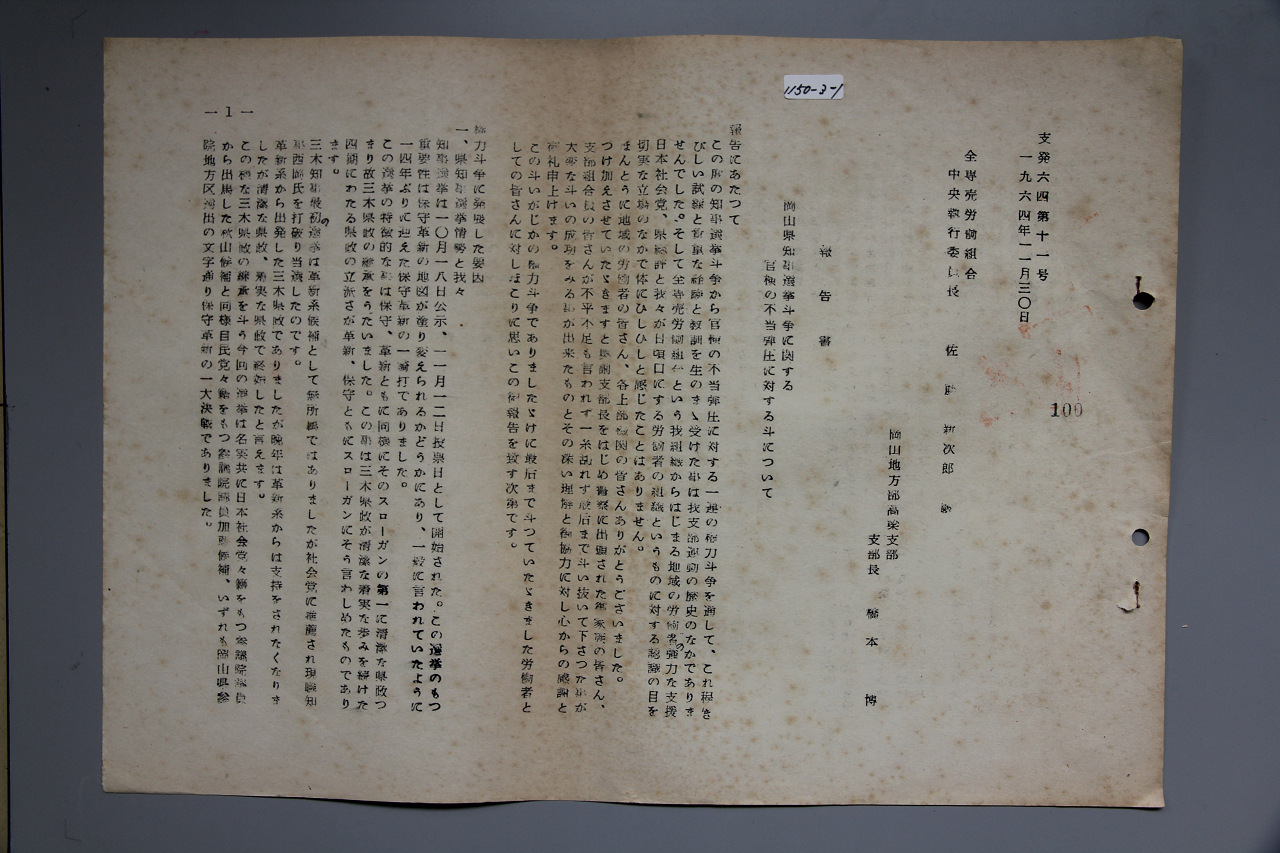 1150-3-1
支発六四第十一号
一九六四年一一月三〇日
100
全専売労働組合
中央執行委員長 佐藤新次郎殿
岡山地方部高梁支部
支部長 橋本博
報告書
岡山県知事選挙斗争に関する
官権の不当弾圧に対する斗について
報告にあたつて
この度の知事選挙斗争から官権の不当弾圧に対する一連の権力斗争を通して、これ程き
びしい試練と貴重な経験と教訓を生のまゝ受けた事は我支部運動の歴史のなかでありま
せんでした。そして全専売労働組合という我組織からはじまる地域の労働者の強力な支援
日本社会党、県総評と我々が日頃口にする労働者の組織というものに対する認識の目を
切実な立場のなかで体にひしひしと感じたことはありません。
まんとうに地域の労働者の皆さん、各上部機関の皆さんありがとうございました。
つけ加えさせていたゞきますと専調支部長をはじめ警察に出頭された御家族の皆さん、
支部組合員の皆さんが不平不足も言われず一糸乱れず最后まで斗い抜いて下さつた事が
大きな斗いの成功をみる事が出来たものとその深い理解と御協力に対し心からの感謝と
御礼申上げます。
この斗いがじかの権力斗争でありましたゞけに最后まで斗つていたゞきました労働者と
しての皆さんに対しほこりに思いこの御報告を致す次第です。
権力斗争に発展した要因
一、県知事選挙情勢と我々
知事選挙は一〇月一八日公示、一一月一二日投票日として開始された。この選挙のもつ
重要性は保守革新の地図が塗り変えられるかどうかにあり、一般に言われていたように
一四年ぶりに迎えた保守革新の一騎打でありました。
この選挙の特徴的な事は保守、革新ともに同様にそのスローガンの第一に清潔な県政つ
まり故三木県政の継承をうたいました。この事は三木県政が清潔な着実な歩みを続けた
四期にわたる県政の立派さが革新、保守ともにスローガンにそう言わしめたものであり
ます。
三木知事最初の選挙は革新系候補として無所属ではありましたが社会党に推薦され現職知
事西岡氏を打破り当選したのです。
革新系から出発した三木県政でありましたが晩年は革新系からは支持をされたくなりま
したが清潔な県政、着実な県政で終始したと言えます。
この様な三木県政の継承を斗う今回の選挙は名実共に日本社会党々籍をもつ参議院議員
から出馬した秋山候補と同様自民党々籍をもつ参議院議員加藤候補、いずれも岡山県参
院地方区選出の文字通り保守革新の一大決戦でありました。
－1－